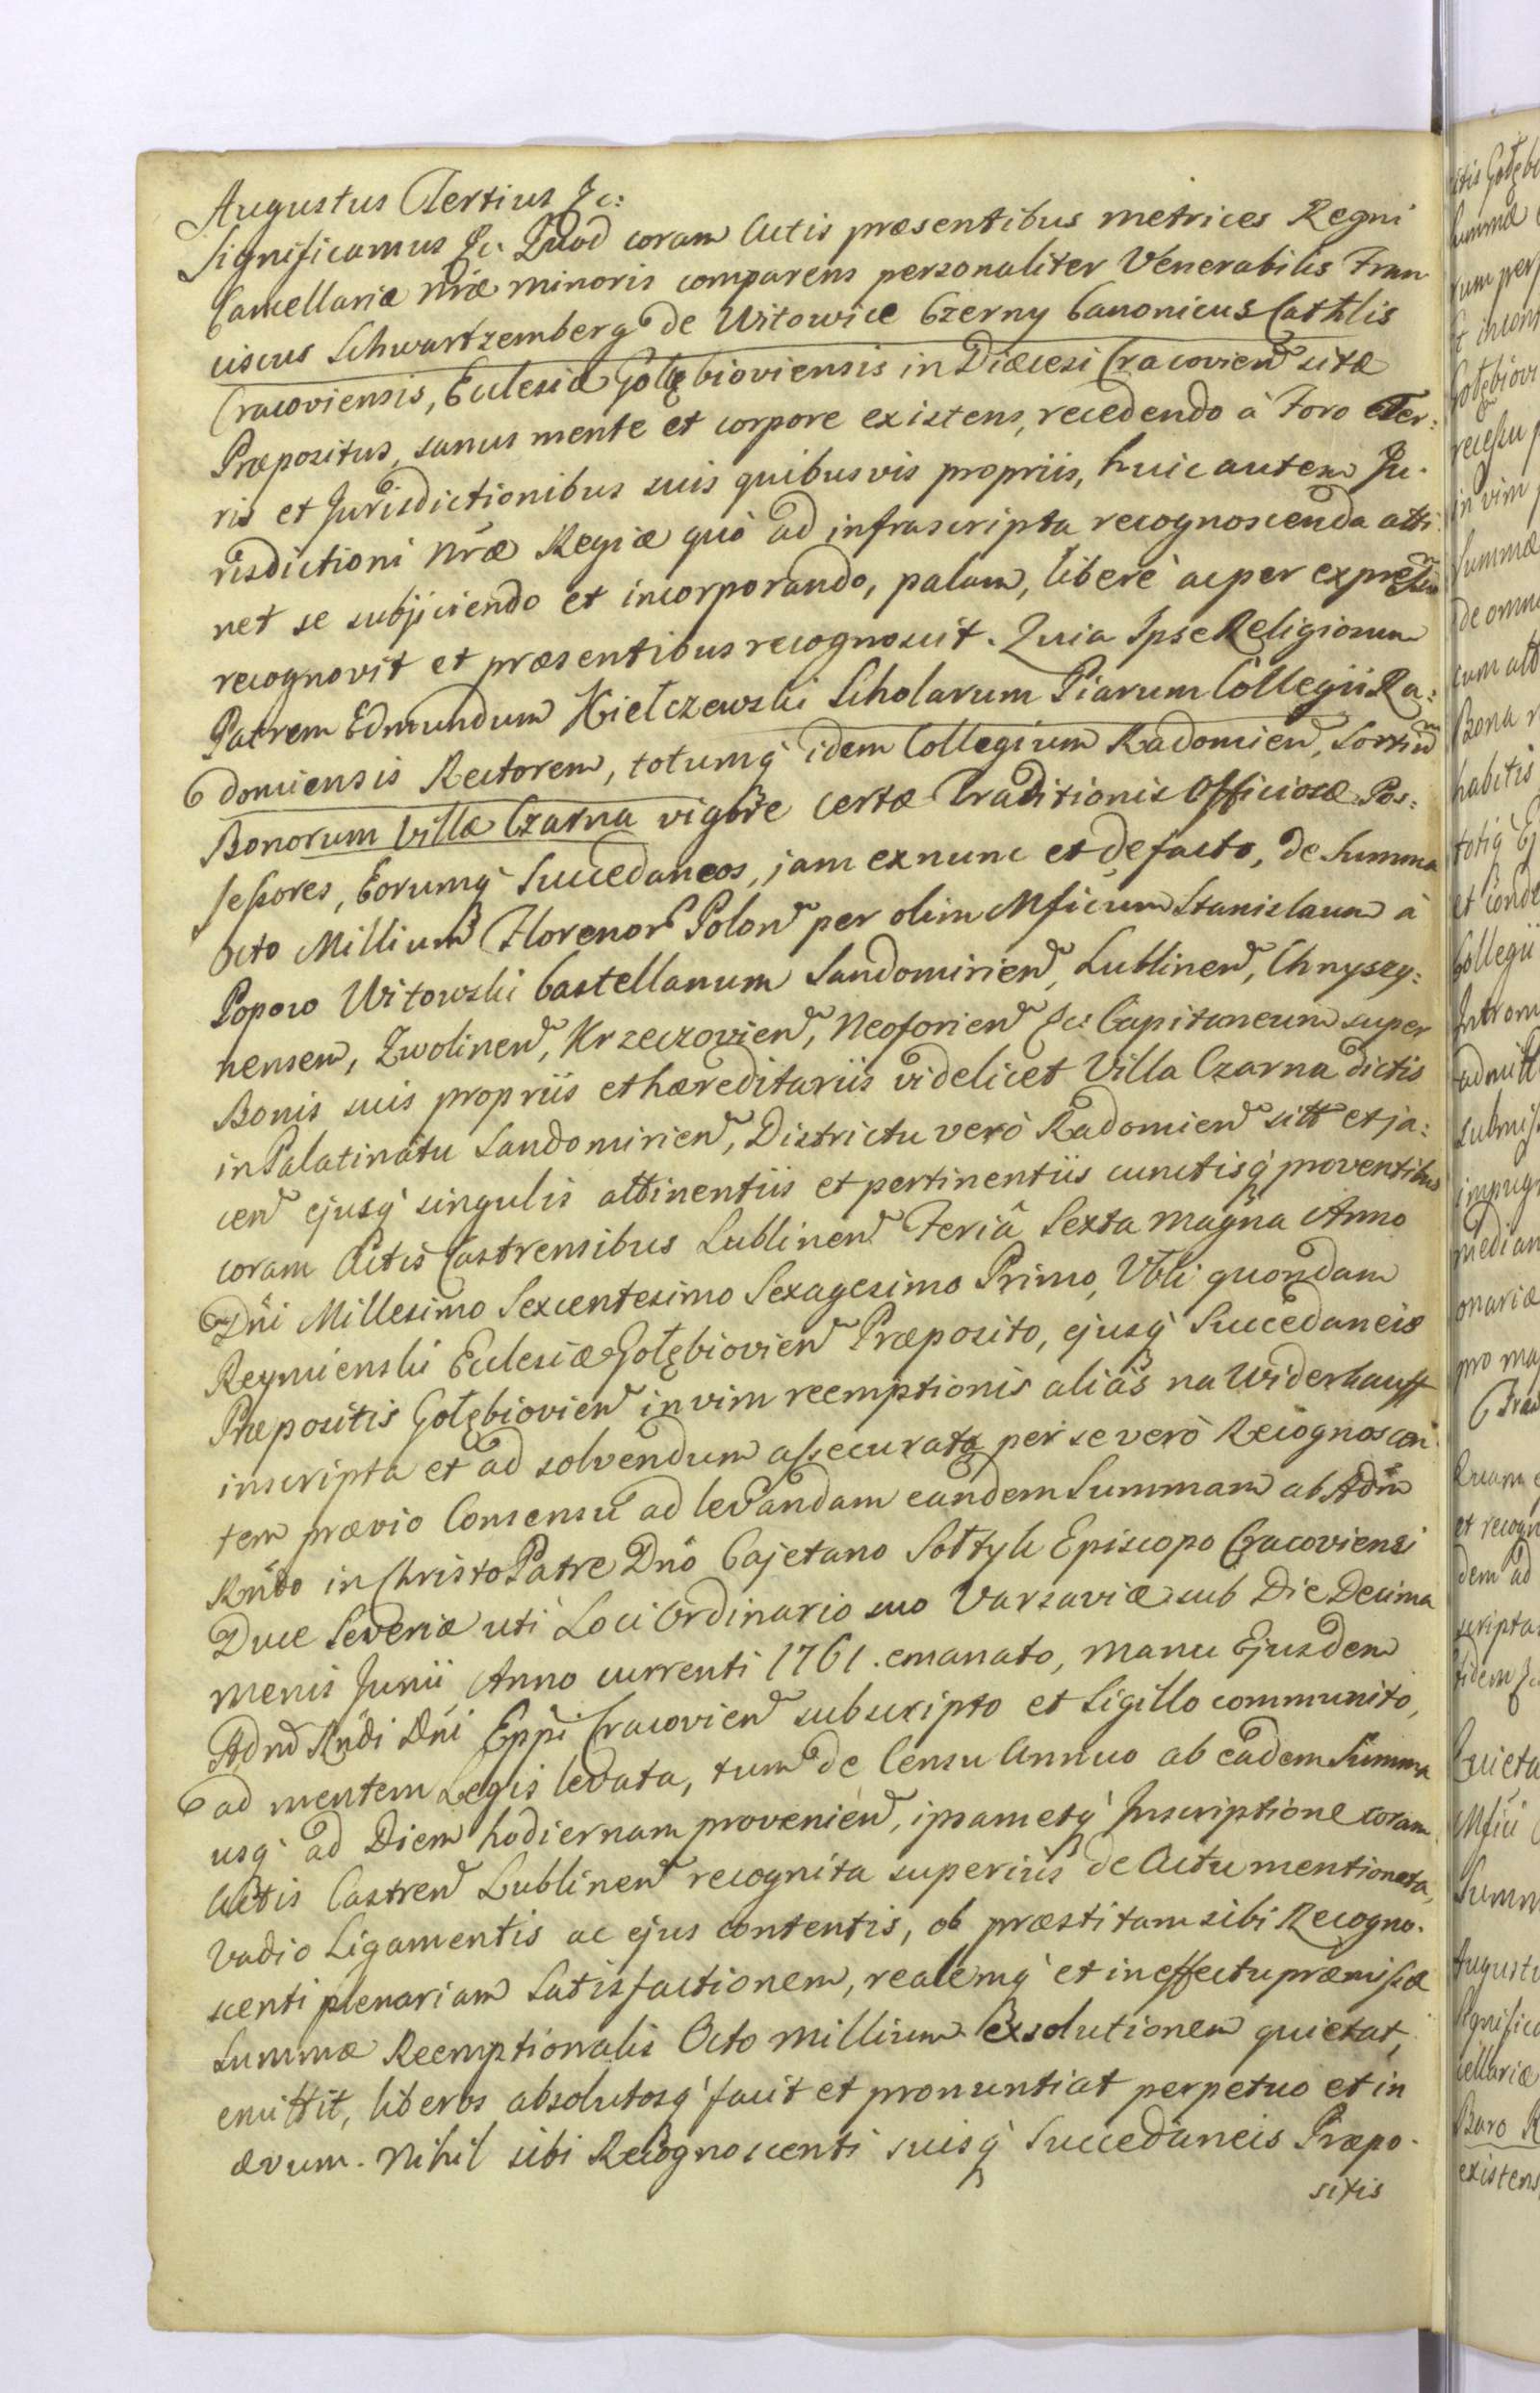 Augustus Tertius &c:
Significamus &c. Quod coram Actis præsentibus metrices Regni
Cancellariæ Nræ minoris comparens personaliter Venerabilis Fran
ciscus Schwartzemberg de Witowice Czerny Canonicus Cathlis
Cracoviensis, Eclesiæ Gołębioviensis in Diæcesi Cracovien sitæ
Præpositus, sanus mente et corpore existens, recedendo à Foro Ter:
ris et Jurisdictionibus suis quibusvis propriis, huic autem Ju.
risdictioni Nræ Regiæ quò ad infrascripta recognoscenda atti
net se subjiciendo et incorporando, palam, liberè ac per expressum
recognovit et præsentibus recognoscit. Quia Ipse Religiosum
Patrem Edmundum Kiełczewski Scholarum Piarum Collegii Ra:
domiensis Rectorem, totumq' idem Collegium Radomien, Sortium
Bonorum Villæ Czarna vigore certæ Traditionis Officiosæ Pos:
sessores, Eorumq' Succedaneos, jam ex nunc et de facto, de Summa
Octo Millium Florenor Polon per olim Mficum Stanislaum à
Popowo Witowski Castellanum Sandomirien, Lublinen, Chnyszy:
nensem, Zwolinen, Krzeczovien, Neoforien &c: Capitaneum super
Bonis suis propriis et hæreditariis videlicet Villa Czarna dictis
in Palatinatu Sandomirien, Districtu verò Radomien sitt et ja:
cen ejusq' singulis attinentiis et pertinentiis cunctisq' proventibus
coram Actis Castrensibus Lublinen Feriâ Sexta magna Anno
Dñi Millesimo Sexcentesimo Sexagesimo Primo, Vbli quondam
Reymienski Eclesiæ Gołębiovien Præposito, ejusq' Succedaneis
Præpositis Gołębiovien in vim reemptionis aliàs na Widerkauff
inscripta et ad solvendum assecurata per se verò Recognoscen
tem prævio Consensu ad levandam eandem Summam ab Adm
Rndo in Christo Patre Dno Cajetano Sołtyk Episcopo Cracoviensi
Duce Severiæ uti Loci Ordinario suo Varsaviæ sub Die Decima
Mensis Junii Anno currenti 1761. emanato, manu Ejusdem
Adm Rndi Dni Eppi Cracovien subscripto et Sigillo communito,
ad mentem Legis levata, tum de Censu Annuo ab eadem Summa
usq' ad Diem hodiernam provenien, ipsametq' Inscriptione coram
Actis Castren Lublinen recognita superius de Actu mentionata,
Vadio Ligamentis ac ejus contentis, ob præstitam sibi Recogno.
scenti plenariam Satisfactionem, realemq' et in effectu præmissæ
Summæ Reemptionalis Octo Millium Exsolutionem quietat,
emittit, liberos absolutosq' facit et pronuntiat perpetuo et in
ævum. Nihil sibi Recognoscenti suisq' Succedaneis Præpo.
sitis